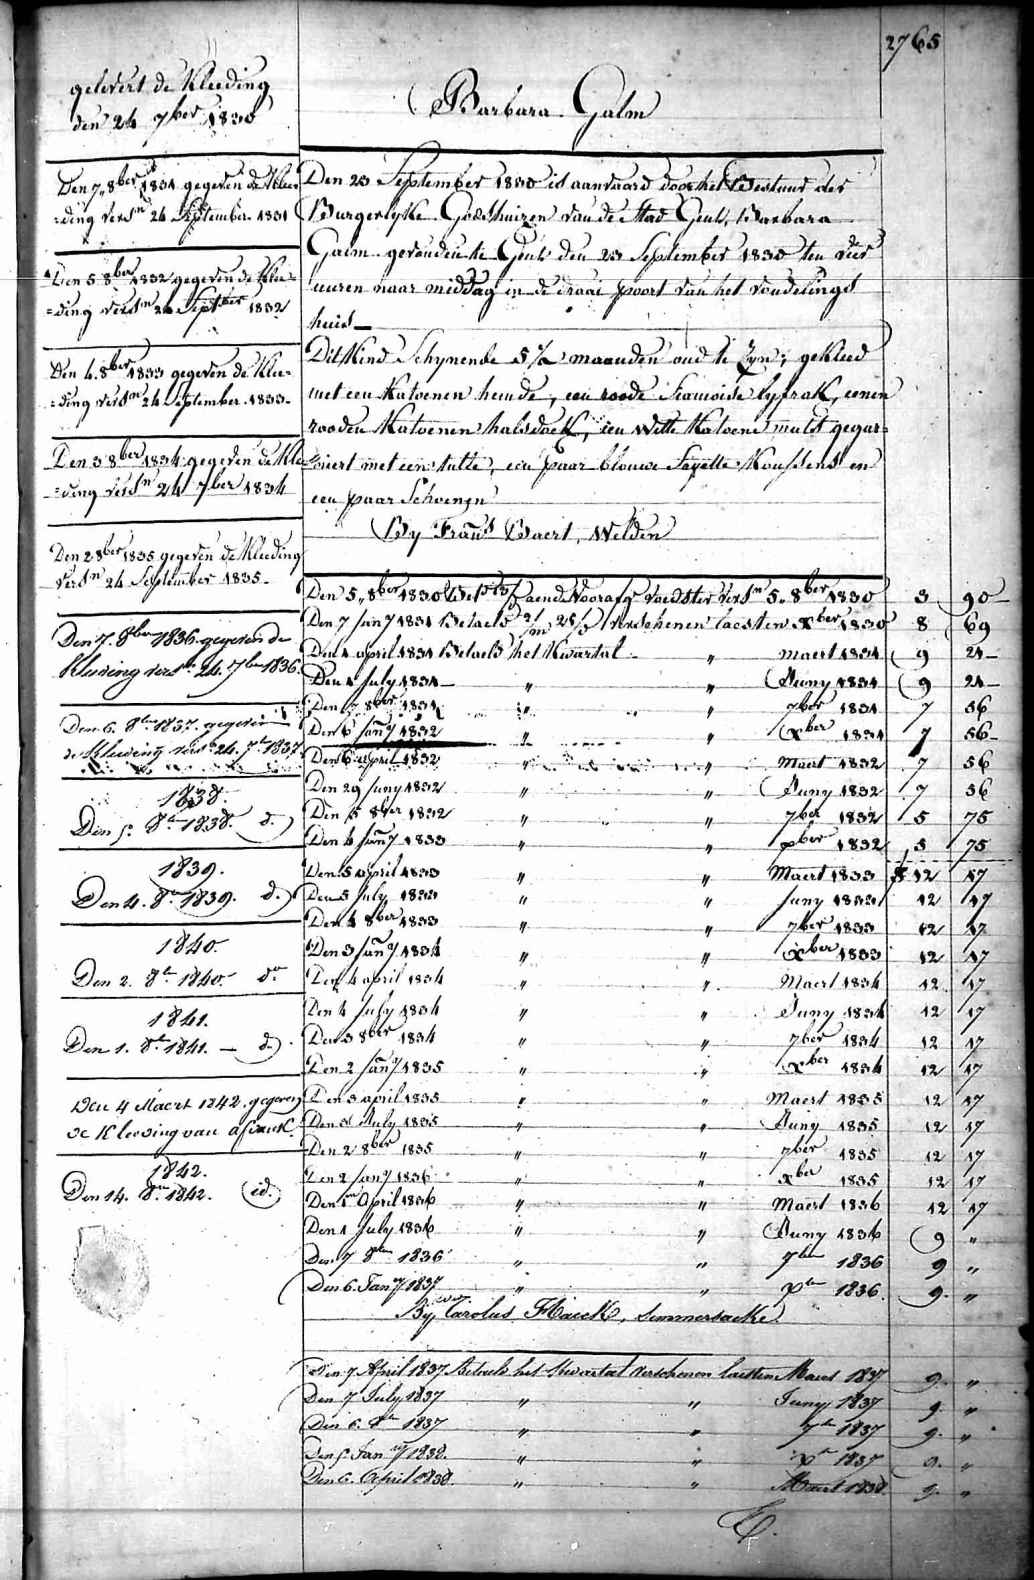 2765
gelevert de Kleeding
den 24 7ber 1830
Den 7,, 8ber 1831 gegeven de Klee
=ding versn 24 September 1831
Den 5 8ber 1832 gegeven de Klee=
=ding versn 24 Septber 1832
Den 4. 8ber 1833 gegeven de Klee-
=ding versn 24 September 1833-
Den 3 8ber 1834 gegeven de Klee
=ding versn 24 7ber 1834
Den 2 8ber 1835 gegeven de Kleeding
versn 24 September 1835-
Den 7. 8ber 1836. gegeven de
Kleeding versn 24. 7ber 1836.
Den 6. 8br 1837. gegeven
de Kleeding versn 24. 7br 1837.
1838.
Den 5. 8br 1838. d.
1839.
Den 4. 8br 1839. d.
1840.
Den 2. 8br 1840. do
1841.
Den 1. 8br 1841. — d.
Den 4 Maert 1842. gegeven
de Kleeding van
1842.
Den 14. 8br 1842. id.
Barbara Galm
Den 23 September 1830 is aanvaard door het Bestuur der
Burgerlyke Godshuizen van de Stad Gent, Barbara
Galm gevonden te Gent den 23 September 1830 ten vier
uuren naar middag in de draai poort van het vondelings
huis—
Dit Kind Schynende 5 1/2 maanden oud te Zyn; gekleed
met een Katoenen hemde, een roode Siamoise lyfrak, eenen
rooden Katoenen halsdoek, een witte Katoene muts gegar=
=niert met een tulle, een paar blouwe Sayette Koussens en
een paar Schoenen
By Frans Baert, Welden
Den 5,, 8ber 1830 Voorafg voedster versn 5,, 8ber 1830 3 90
Den 7 Jany 1831 Betaeld verschenen laesten Xber 1830 8 69
Den 4 april 1831 Betaeld het Kwartal " maert 1831 9 24-
Den 4 July 1831 " " Juny 1831 9 24-
Den 7 8ber 1831 " " 7ber 1831 7 56
Den 6 Jany 1832 " " Xber 1831 7 56-
Den 6 april 1832 " " Maert 1832 7 56
Den 29 Juny 1832 " " Juny 1832 7 56
Den 5 8ber 1832 " " 7ber 1832 5 75
Den 4 Jany 1833 " " Xber 1832 5 75
Den 5 april 1833 " " Maert 1833 12 17
Den 5 July 1833 " " Juny 1833 12 17
Den 4 8ber 1833 " " 7ber 1833 12 17
Den 3 Jany 1834 " " Xber 1833 12 17
Den 4 april 1834 " " Maert 1834 12 17
Den 4 July 1834 " " Juny 1834 12 17
Den 3 8ber 1834 " " 7ber 1834 12 17
Den 2 Jany 1835 " " Xber 1834 12 17
Den 3 april 1835 " " Maert 1835 12 17
Den 3 July 1835 " " Juny 1835 12 17
Den 2 8ber 1835 " " 7ber 1835 12 17
Den 2 Jany 1836 " " Xber 1835 12 17
Den 1 April 1836 " " Maert 1836 12 17
Den 1 July 1836 " " Juny 1836 9 "
Den 7 8ber 1836 " " 7ber 1836 9 "
Den 6. Jany 1837 " " Xber 1836. 9. "
By Carolus Haeck, Semmersaeke
Den 7 April 1837 Betaelt het Kwartael verschenen laesten Maert 1837 9. "
Den 7 July 1837 " " Juny 1837 9. "
Den 6. 8br 1837 " " 7br 1837 9. "
Den 5 Jany 1838. " " Xbr 1837 9. "
Den 6. April 1838. " " Maert 1838. 9. "